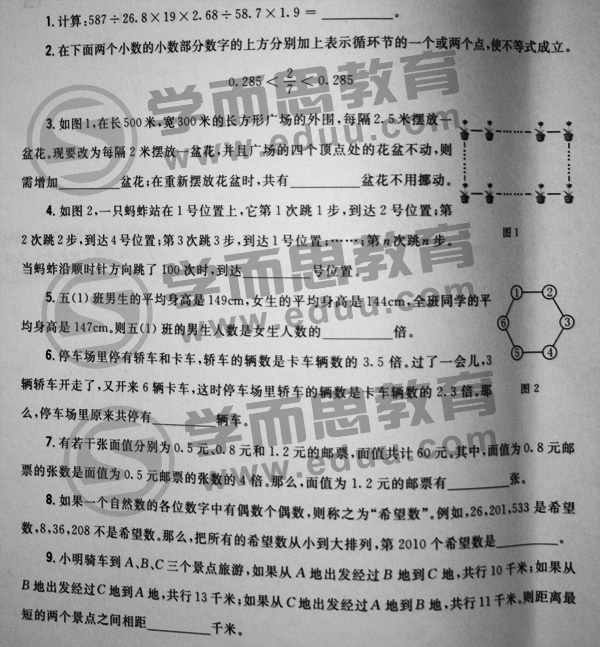 1.计算:587÷26.8×19×2.68÷58.7×1.9=________。
2.在下面两个小数的小数部分数字的上方分别加上表示循环节的一个或两个点,使不等式成立。
0.285<2/7<0.285
3.如图1,在长500米,宽300米的长方形广场的外围,每隔2.5米摆放一
盆花。现要改为每隔2米摆放一盆花,并且广场的四个顶点处的花盆不动,则
需增加________盆花;在重新摆放花盆时,共有________盆花不用挪动。
图1
4.如图2,一只蚂蚱站在1号位置上,它第1次跳1步,到达2号位置;第
2次跳2步,到达4号位置;第3次跳3步,到达1号位置;……;第n次跳n步。
当蚂蚱沿顺时针方向跳了100次时,到达________号位置。
5.五(1)班男生的平均身高是149cm,女生的平均身高是144cm,全班同学的平
均身高是147cm。则五(1)班的男生人数是女生人数的________倍。
①②③④⑤⑥
图2
6.停车场里停有轿车和卡车,轿车的辆数是卡车辆数的3.5倍。过了一会儿,3
辆轿车开走了,又开来6辆卡车,这时停车场里轿车的辆数是卡车辆数的2.3倍。那
么,停车场里原来共停有________辆车。
7.有若干张面值分别为0.5元、0.8元和1.2元的邮票,面值共计60元。其中,面值为0.8元邮
票的张数是面值为0.5元邮票的张数的4倍。那么,面值为1.2元的邮票有________张。
8.如果一个自然数的各位数字中有偶数个偶数,则称之为“希望数”。例如,26,201,533是希望
数,8,36,208不是希望数。那么,把所有的希望数从小到大排列,第2010个希望数是________。
9.小明骑车到A、B、C三个景点旅游,如果从A地出发经过B地到C地,共行10千米;如果从
B地出发经过C地到A地,共行13千米;如果从C地出发经过A地到B地,共行11千米。则距离最
短的两个景点之间相距________千米。
学而思教育
www.eduu.com
学而思教育
www.eduu.com
学而思教育
www.eduu.com